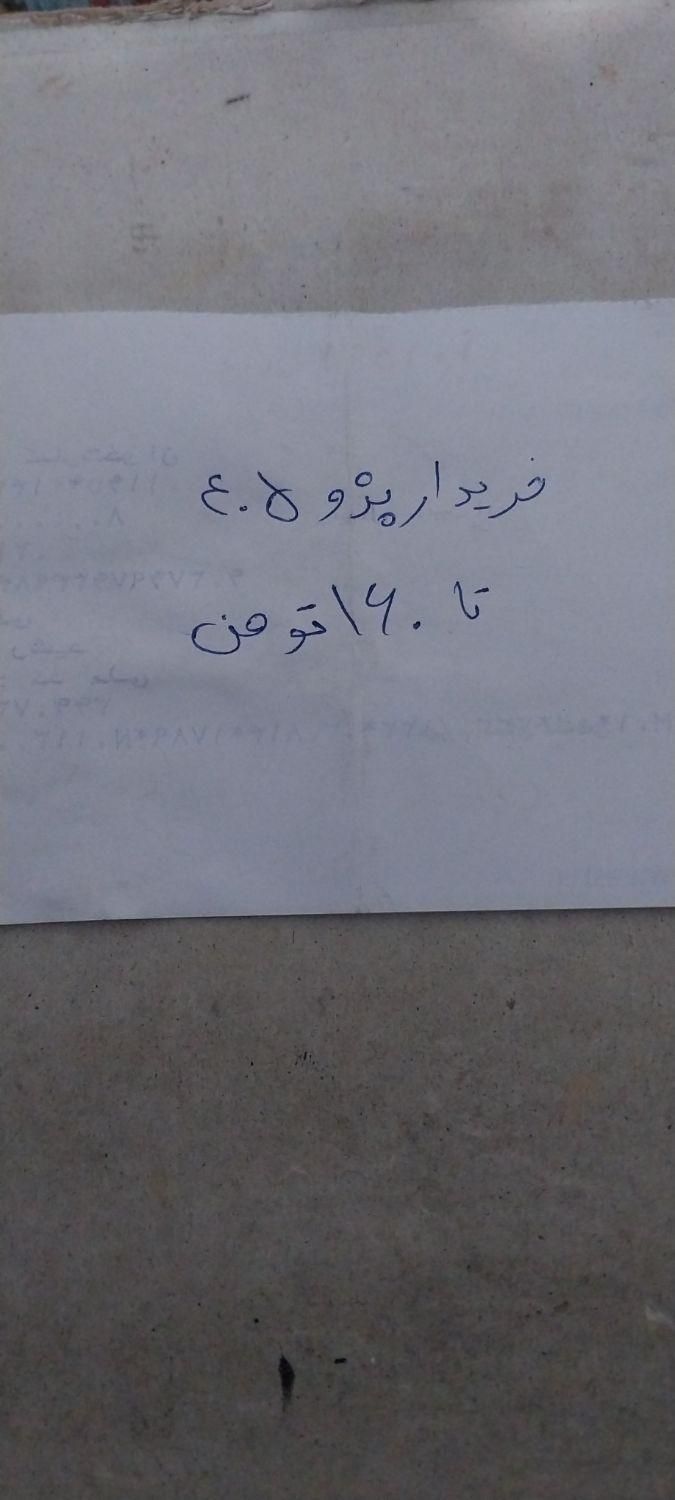 خریدار پژو ۴۰۵
تا ۱۶۰ تومن